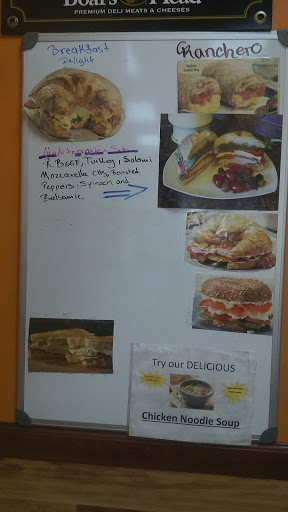 Boar's Head
PREMIUM DELI MEATS & CHEESES
Breakfast
Delight
Ranchero
R. Beef, Turkey, Salami
Mozzarella CHS, Roasted
Peppers, Spinach and
Balsamic
Try our DELICIOUS
Chicken Noodle Soup